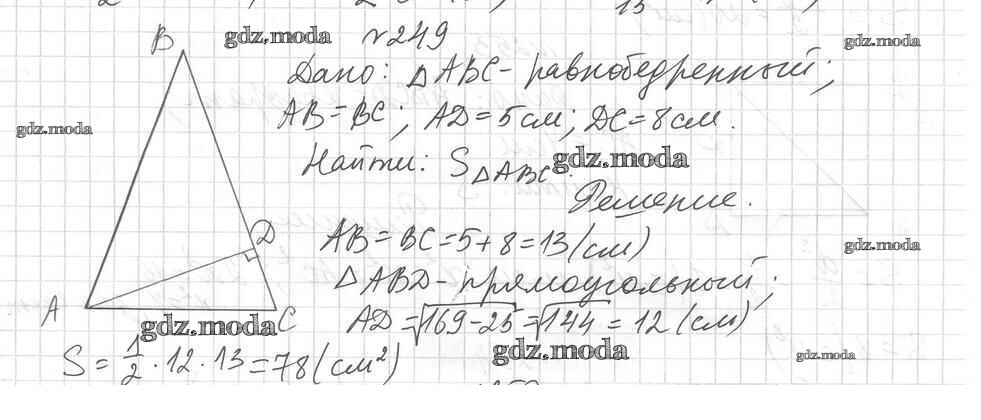 B
gdz.moda
№249
gdz.moda
Дано: △ABC - равнобедренный;
AB = BC; AD = 5 см; DC = 8 см.
gdz.moda
Найти: S△ABC.
gdz.moda
Решение.
D
AB = BC = 5 + 8 = 13 (см)
gdz.moda
△ABD - прямоугольный;
A
C
gdz.moda
AD = √169 - 25 = √144 = 12 (см)
S = 1/2 · 12 · 13 = 78 (см²)
gdz.moda
gdz.moda